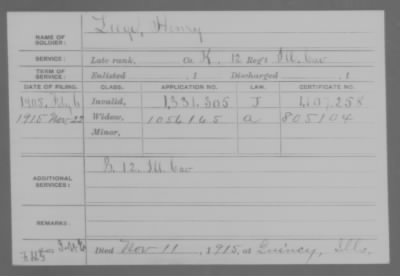 NAME OF SOLDIER: Luge, Henry
SERVICE: Late rank, Co. K, 12 Reg't Ill. Cav
TERM OF SERVICE: Enlisted , 1 Discharged , 1
DATE OF FILING. CLASS. APPLICATION NO. LAW. CERTIFICATE NO.
1905, July 6 Invalid, 1,331,505 J 1,107,258
1915 Nov 22 Widow, 1056165 a 805104
Minor,
ADDITIONAL SERVICES: G. 12. Ill. Cav
REMARKS:
Died Nov 11, 1915, at Quincy, Ills.